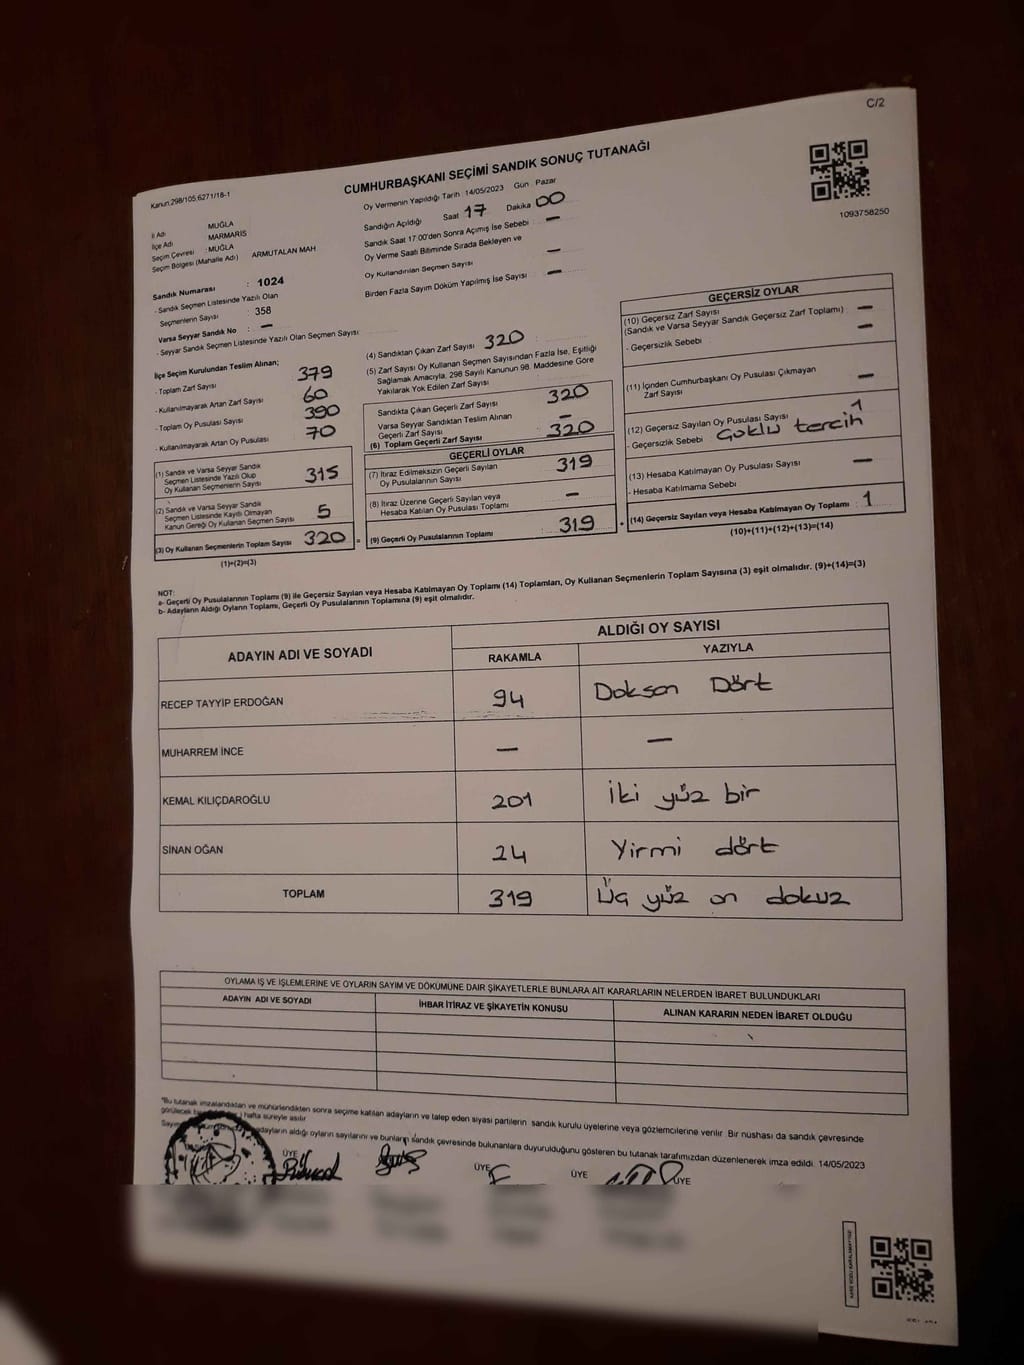 C/2
Kanun:298/105;6271/18-1
CUMHURBAŞKANI SEÇİMİ SANDIK SONUÇ TUTANAĞI
Oy Vermenin Yapıldığı Tarih 14/05/2023 Gün : Pazar
İl Adı MUĞLA
İlçe Adı MARMARİS
Seçim Çevresi : MUĞLA
Seçim Bölgesi (Mahalle Adı) ARMUTALAN MAH
Sandığın Açıldığı Saat 17 Dakika 00
Sandık Saat 17:00'den Sonra Açılmış İse Sebebi : —
Oy Verme Saati Bitiminde Sırada Bekleyen ve
Oy Kullandırılan Seçmen Sayısı —
Birden Fazla Sayım Döküm Yapılmış İse Sayısı —
1093758250
Sandık Numarası : 1024
- Sandık Seçmen Listesinde Yazılı Olan
Seçmenlerin Sayısı : 358
Varsa Seyyar Sandık No : —
- Seyyar Sandık Seçmen Listesinde Yazılı Olan Seçmen Sayısı
İlçe Seçim Kurulundan Teslim Alınan;
- Toplam Zarf Sayısı 379
- Kullanılmayarak Artan Zarf Sayısı 60
- Toplam Oy Pusulası Sayısı 390
- Kullanılmayarak Artan Oy Pusulası 70
(1) Sandık ve Varsa Seyyar Sandık
Seçmen Listesinde Yazılı Olup
Oy Kullanan Seçmenlerin Sayısı 315
(2) Sandık ve Varsa Seyyar Sandık
Seçmen Listesinde Kayıtlı Olmayan
Kanun Gereği Oy Kullanan Seçmen Sayısı 5
(3) Oy Kullanan Seçmenlerin Toplam Sayısı 320 =
(1)+(2)=(3)
(4) Sandıktan Çıkan Zarf Sayısı 320
(5) Zarf Sayısı Oy Kullanan Seçmen Sayısından Fazla İse, Eşitliği
Sağlamak Amacıyla, 298 Sayılı Kanunun 98. Maddesine Göre
Yakılarak Yok Edilen Zarf Sayısı
Sandıkta Çıkan Geçerli Zarf Sayısı 320
Varsa Seyyar Sandıktan Teslim Alınan
Geçerli Zarf Sayısı —
(6) Toplam Geçerli Zarf Sayısı 320
GEÇERLİ OYLAR
(7) İtiraz Edilmeksizin Geçerli Sayılan
Oy Pusulalarının Sayısı 319
(8) İtiraz Üzerine Geçerli Sayılan veya
Hesaba Katılan Oy Pusulası Toplamı —
(9) Geçerli Oy Pusulalarının Toplamı 319
GEÇERSİZ OYLAR
(10) Geçersiz Zarf Sayısı
(Sandık ve Varsa Seyyar Sandık Geçersiz Zarf Toplamı) : —
- Geçersizlik Sebebi —
(11) İçinden Cumhurbaşkanı Oy Pusulası Çıkmayan
Zarf Sayısı —
(12) Geçersiz Sayılan Oy Pusulası Sayısı 1
- Geçersizlik Sebebi Çoklu tercih
(13) Hesaba Katılmayan Oy Pusulası Sayısı —
- Hesaba Katılmama Sebebi
(14) Geçersiz Sayılan veya Hesaba Katılmayan Oy Toplamı : 1
(10)+(11)+(12)+(13)=(14)
NOT:
a- Geçerli Oy Pusulalarının Toplamı (9) ile Geçersiz Sayılan veya Hesaba Katılmayan Oy Toplamı (14) Toplamları, Oy Kullanan Seçmenlerin Toplam Sayısına (3) eşit olmalıdır. (9)+(14)=(3)
b- Adayların Aldığı Oyların Toplamı, Geçerli Oy Pusulalarının Toplamına (9) eşit olmalıdır.
ADAYIN ADI VE SOYADI
ALDIĞI OY SAYISI
RAKAMLA YAZIYLA
RECEP TAYYİP ERDOĞAN 94 Doksan Dört
MUHARREM İNCE — —
KEMAL KILIÇDAROĞLU 201 İki yüz bir
SİNAN OĞAN 24 Yirmi dört
TOPLAM 319 Üç yüz on dokuz
OYLAMA İŞ VE İŞLEMLERİNE VE OYLARIN SAYIM VE DÖKÜMÜNE DAİR ŞİKAYETLERLE BUNLARA AİT KARARLARIN NELERDEN İBARET BULUNDUKLARI
ADAYIN ADI VE SOYADI İHBAR İTİRAZ VE ŞİKAYETİN KONUSU ALINAN KARARIN NEDEN İBARET OLDUĞU
*Bu tutanak imzalandıktan ve mühürlendikten sonra seçime katılan adayların ve talep eden siyasi partilerin sandık kurulu üyelerine veya gözlemcilerine verilir. Bir nüshası da sandık çevresinde
görülecek hafta süreyle asılır.
adayların aldığı oyların sayılarını ve bunların sandık çevresinde bulunanlara duyurulduğunu gösteren bu tutanak tarafımızdan düzenlenerek imza edildi. 14/05/2023
ÜYE ÜYE ÜYE ÜYE